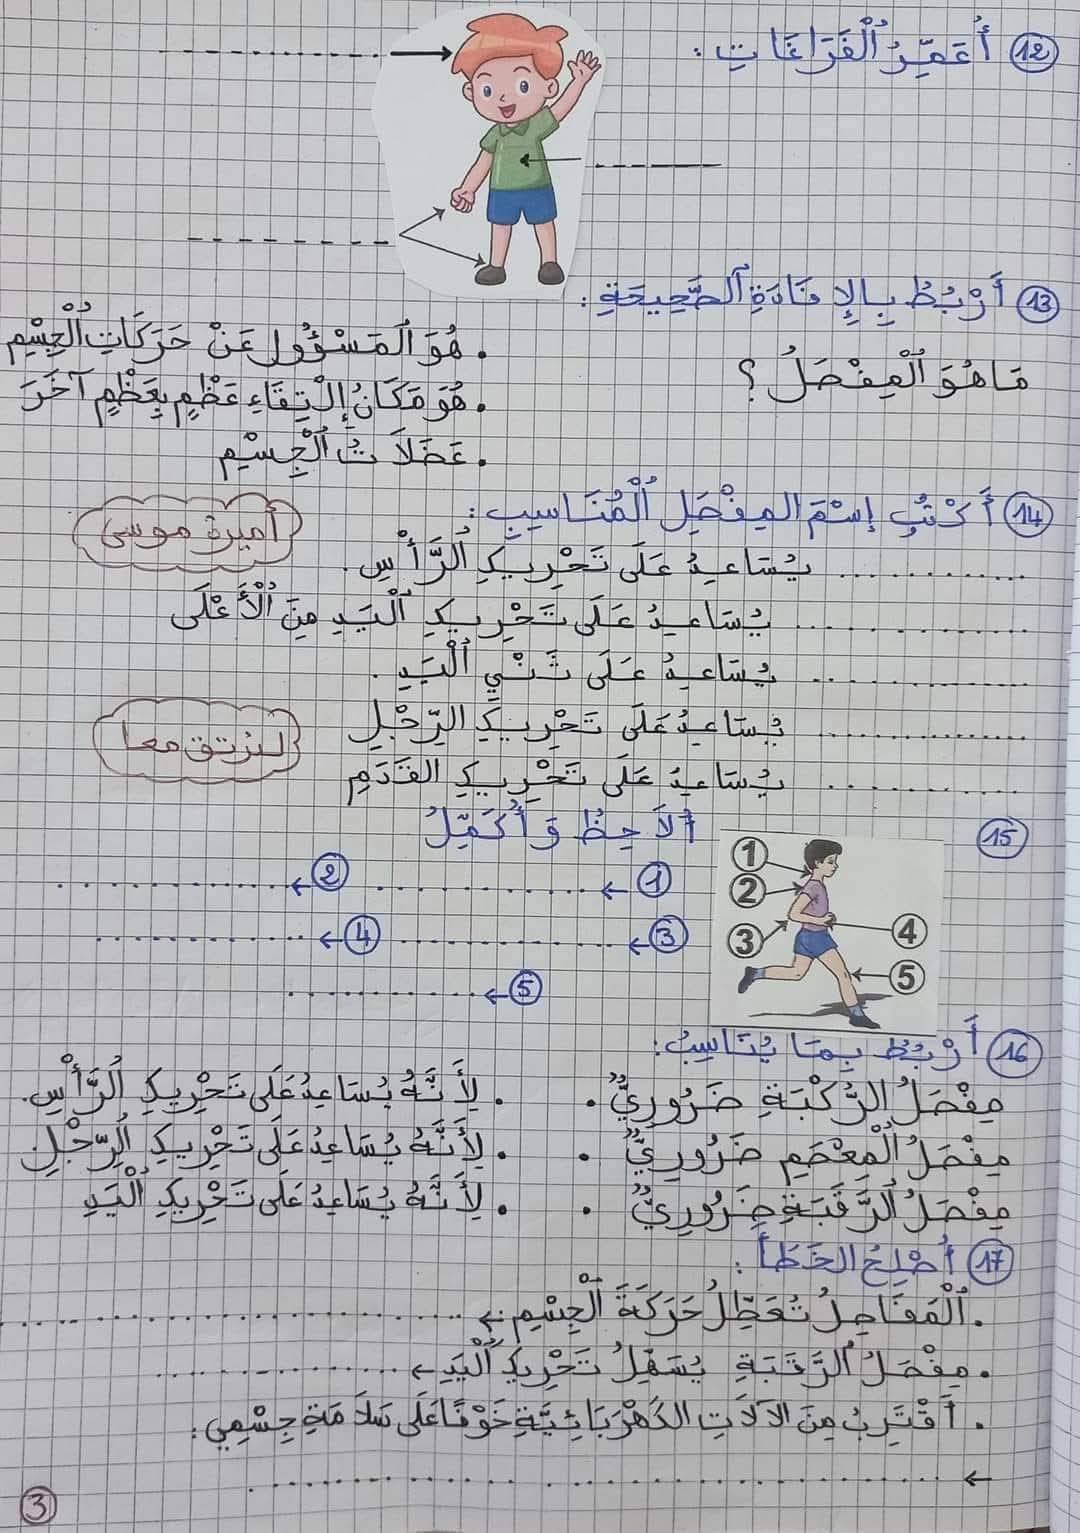 12 أُعَمِّرُ ٱلْفَرَاغَاتِ :
13 أَرْبُطُ بِالإِفَادَةِ ٱلصَّحِيحَةِ :
مَا هُوَ ٱلْمِفْصَلُ ؟
. هُوَ ٱلمَسْؤُول عَنْ حَرَكَاتِ ٱلْجِسْمِ
. هُوَ مَكَانُ إِلْتِقَاءِ عَظْمٍ بِعَظْمٍ آخَرَ
. عَضَلاَتُ ٱلْجِسْمِ
14 أَكْتُبُ إِسْمَ المِفْصَلِ ٱلْمُنَاسِبِ :
أميرة موسى
............ يُسَاعِدُ عَلَى تَحْرِيكِ ٱلرَّأْسِ .
............ يُسَاعِدُ عَلَى تَحْرِيكِ ٱلْيَدِ مِنَ ٱلْأَعْلَى
............ يُسَاعِدُ عَلَى ثَنْيِ ٱلْيَدِ .
............ يُسَاعِدُ عَلَى تَحْرِيكِ الرِّجْلِ
............ يُسَاعِدُ عَلَى تَحْرِيكِ القَدَمِ
لنرتق معا
15 أُلاَحِظُ وَ أُكَمِّلُ
1
2
3
4
5
1 ← ............ 2 ← ............
3 ← ............ 4 ← ............
5 ← ............
16 أَرْبُطُ بِمَا يُنَاسِبُ :
مِفْصَلُ الرُّكْبَةِ ضَرُورِيٌّ . . لِأَنَّهُ يُسَاعِدُ عَلَى تَحْرِيكِ ٱلرَّأْسِ.
مِفْصَلُ ٱلْمِعْصَمِ ضَرُورِيٌّ . . لِأَنَّهُ يُسَاعِدُ عَلَى تَحْرِيكِ ٱلرِّجْلِ.
مِفْصَلُ ٱلرَّقَبَةِ ضَرُورِيٌّ . . لِأَنَّهُ يُسَاعِدُ عَلَى تَحْرِيكِ ٱلْيَدِ
17 أُصْلِحُ الخَطَأَ :
. ٱلْمَفَاصِلُ تُعَطِّلُ حَرَكَةَ ٱلْجِسْمِ ← ............
. مِفْصَلُ ٱلرَّقَبَةِ يُسَهِّلُ تَحْرِيكَ ٱلْيَدِ ← ............
. أَقْتَرِبُ مِنَ الآلَاتِ الكَهْرَبَائِيَّةِ خَوْفًا عَلَى سَلاَمَةِ جِسْمِي :
← ............
3